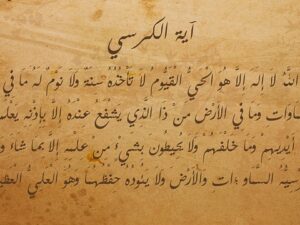 آية الكرسي
اللَّهُ لَا إِلَهَ إِلَّا هُوَ الْحَيُّ الْقَيُّومُ لَا تَأْخُذُهُ سِنَةٌ وَلَا نَوْمٌ لَهُ مَا فِي
اوَاتِ وَمَا فِي الْأَرْضِ مَنْ ذَا الَّذِي يَشْفَعُ عِنْدَهُ إِلَّا بِإِذْنِهِ يَعْلَ
أَيْدِيهِمْ وَمَا خَلْفَهُمْ وَلَا يُحِيطُونَ بِشَيْءٍ مِنْ عِلْمِهِ إِلَّا بِمَا شَاءَ وَ
سِيُّهُ السَّمَاوَاتِ وَالْأَرْضَ وَلَا يَئُودُهُ حِفْظُهُمَا وَهُوَ الْعَلِيُّ الْعَظِي